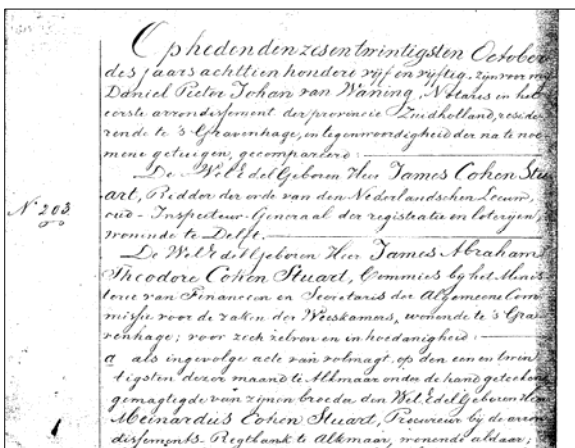 Op heden den zes en twintigsten October
des jaars achttien honderd vijf en vijftig, zijn voor mij
Daniel Pieter Johan van Waning, Notaris in het
eerste arrondissement der provincie Zuidholland, reside-
rende te 's Gravenhage, in tegenwoordigheid der na te noe-
mene getuigen, gecompareerd:
De WelEdelGeboren Heer James Cohen Stu
art, Ridder der orde van den Nederlandschen Leeuw,
N° 203.
oud-Inspecteur-Generaal der registratie en loterijen,
wonende te Delft.
De WelEdelGeboren Heer James Abraham
Theodore Cohen Stuart, Commies bij het Minis-
terie van Financien en Secretaris der Algemeene Com-
missie voor de zaken der Weeskamers, wonende te 's Gra-
venhage; voor zich zelven en in hoedanigheid:
a als ingevolge acte van volmagt, op den een en twin
tigsten dezer maand te Alkmaar onder de hand geteekend
gemagtigde van zijnen broeder den WelEdelGeboren Heer
Meinardus Cohen Stuart, Procureur bij de arron
dissements-Regtbank te Alkmaar, wonende aldaar;